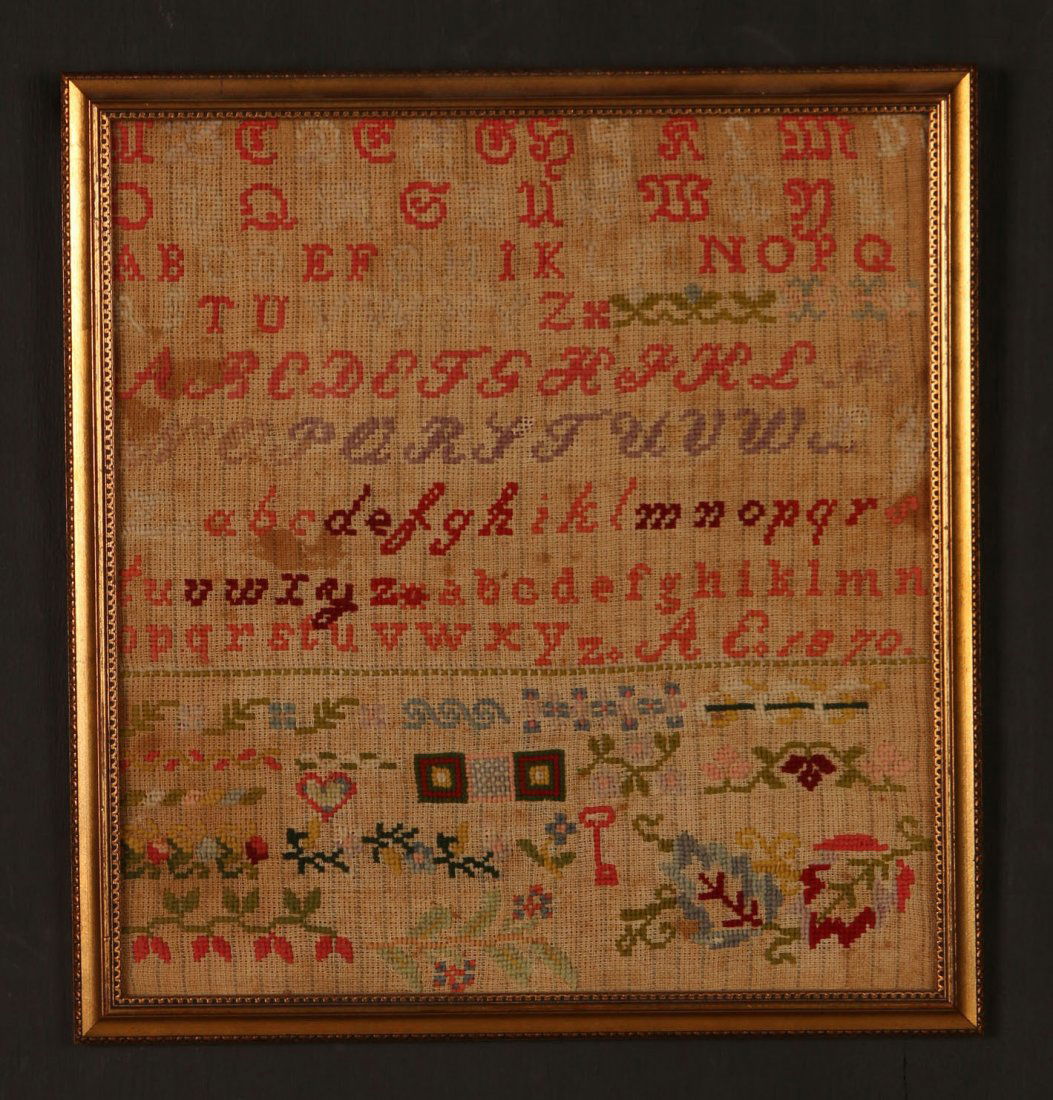 A C E G H K M
O Q S U W Y
A B E F I K N O P Q
T U Z
A B C D E F G H I K L M
N O P Q R S T U V W
a b c d e f g h i k l m n o p q r s
t u v w x y z a b c d e f g h i k l m n
o p q r s t u v w x y z A C. 1870.